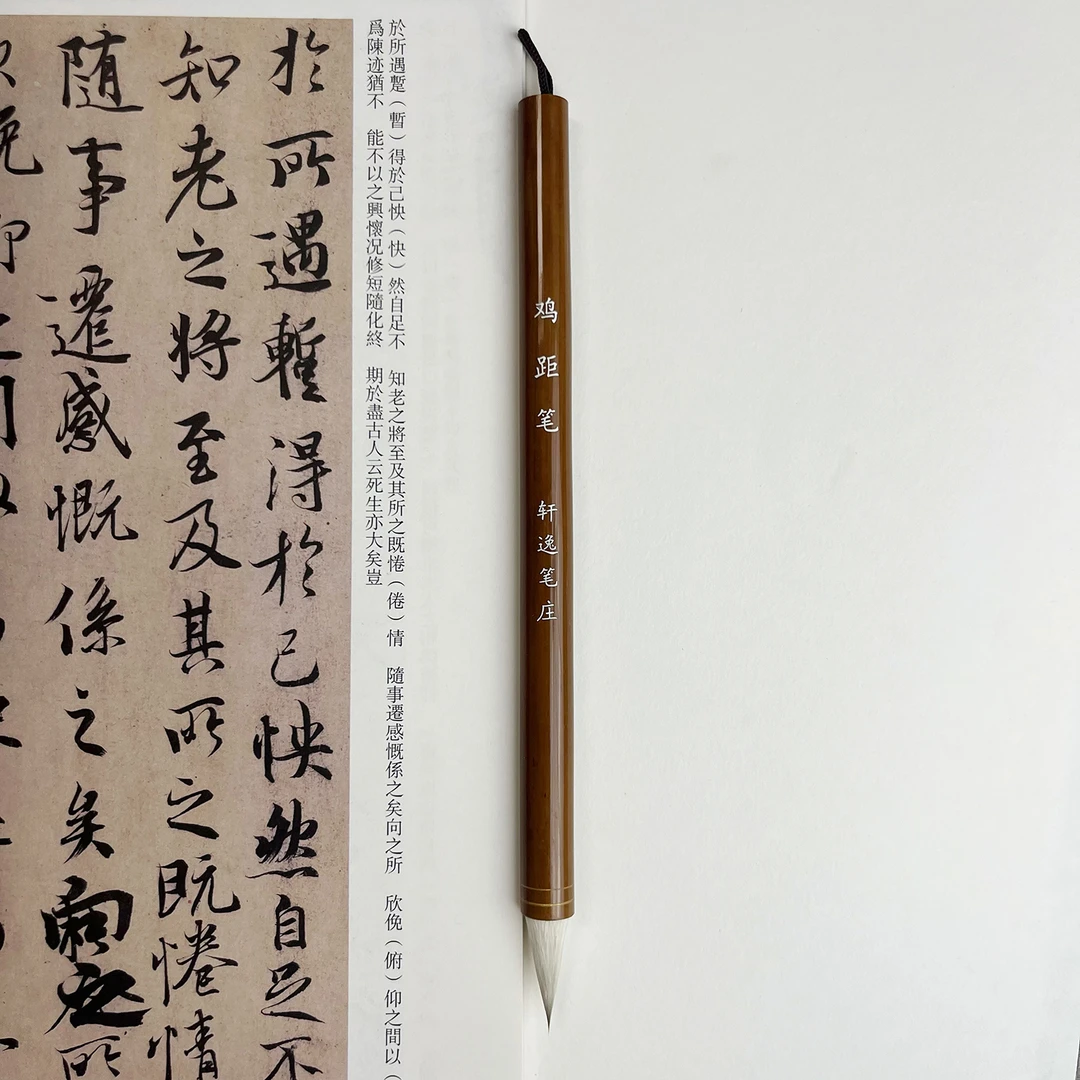 鸡距笔 轩逸笔庄
於所遇蹔（暫）得於己怏（快）然自足不 知老之將至及其所之既惓（倦）情 隨事遷感慨係之矣向之所 欣俛（俯）仰之間以（
爲陳迹猶不 能不以之興懷况修短隨化終 期於盡古人云死生亦大矣豈
於所遇蹔得於己怏然自足不
知老之將至及其所之既惓情
隨事遷感慨係之矣向之所